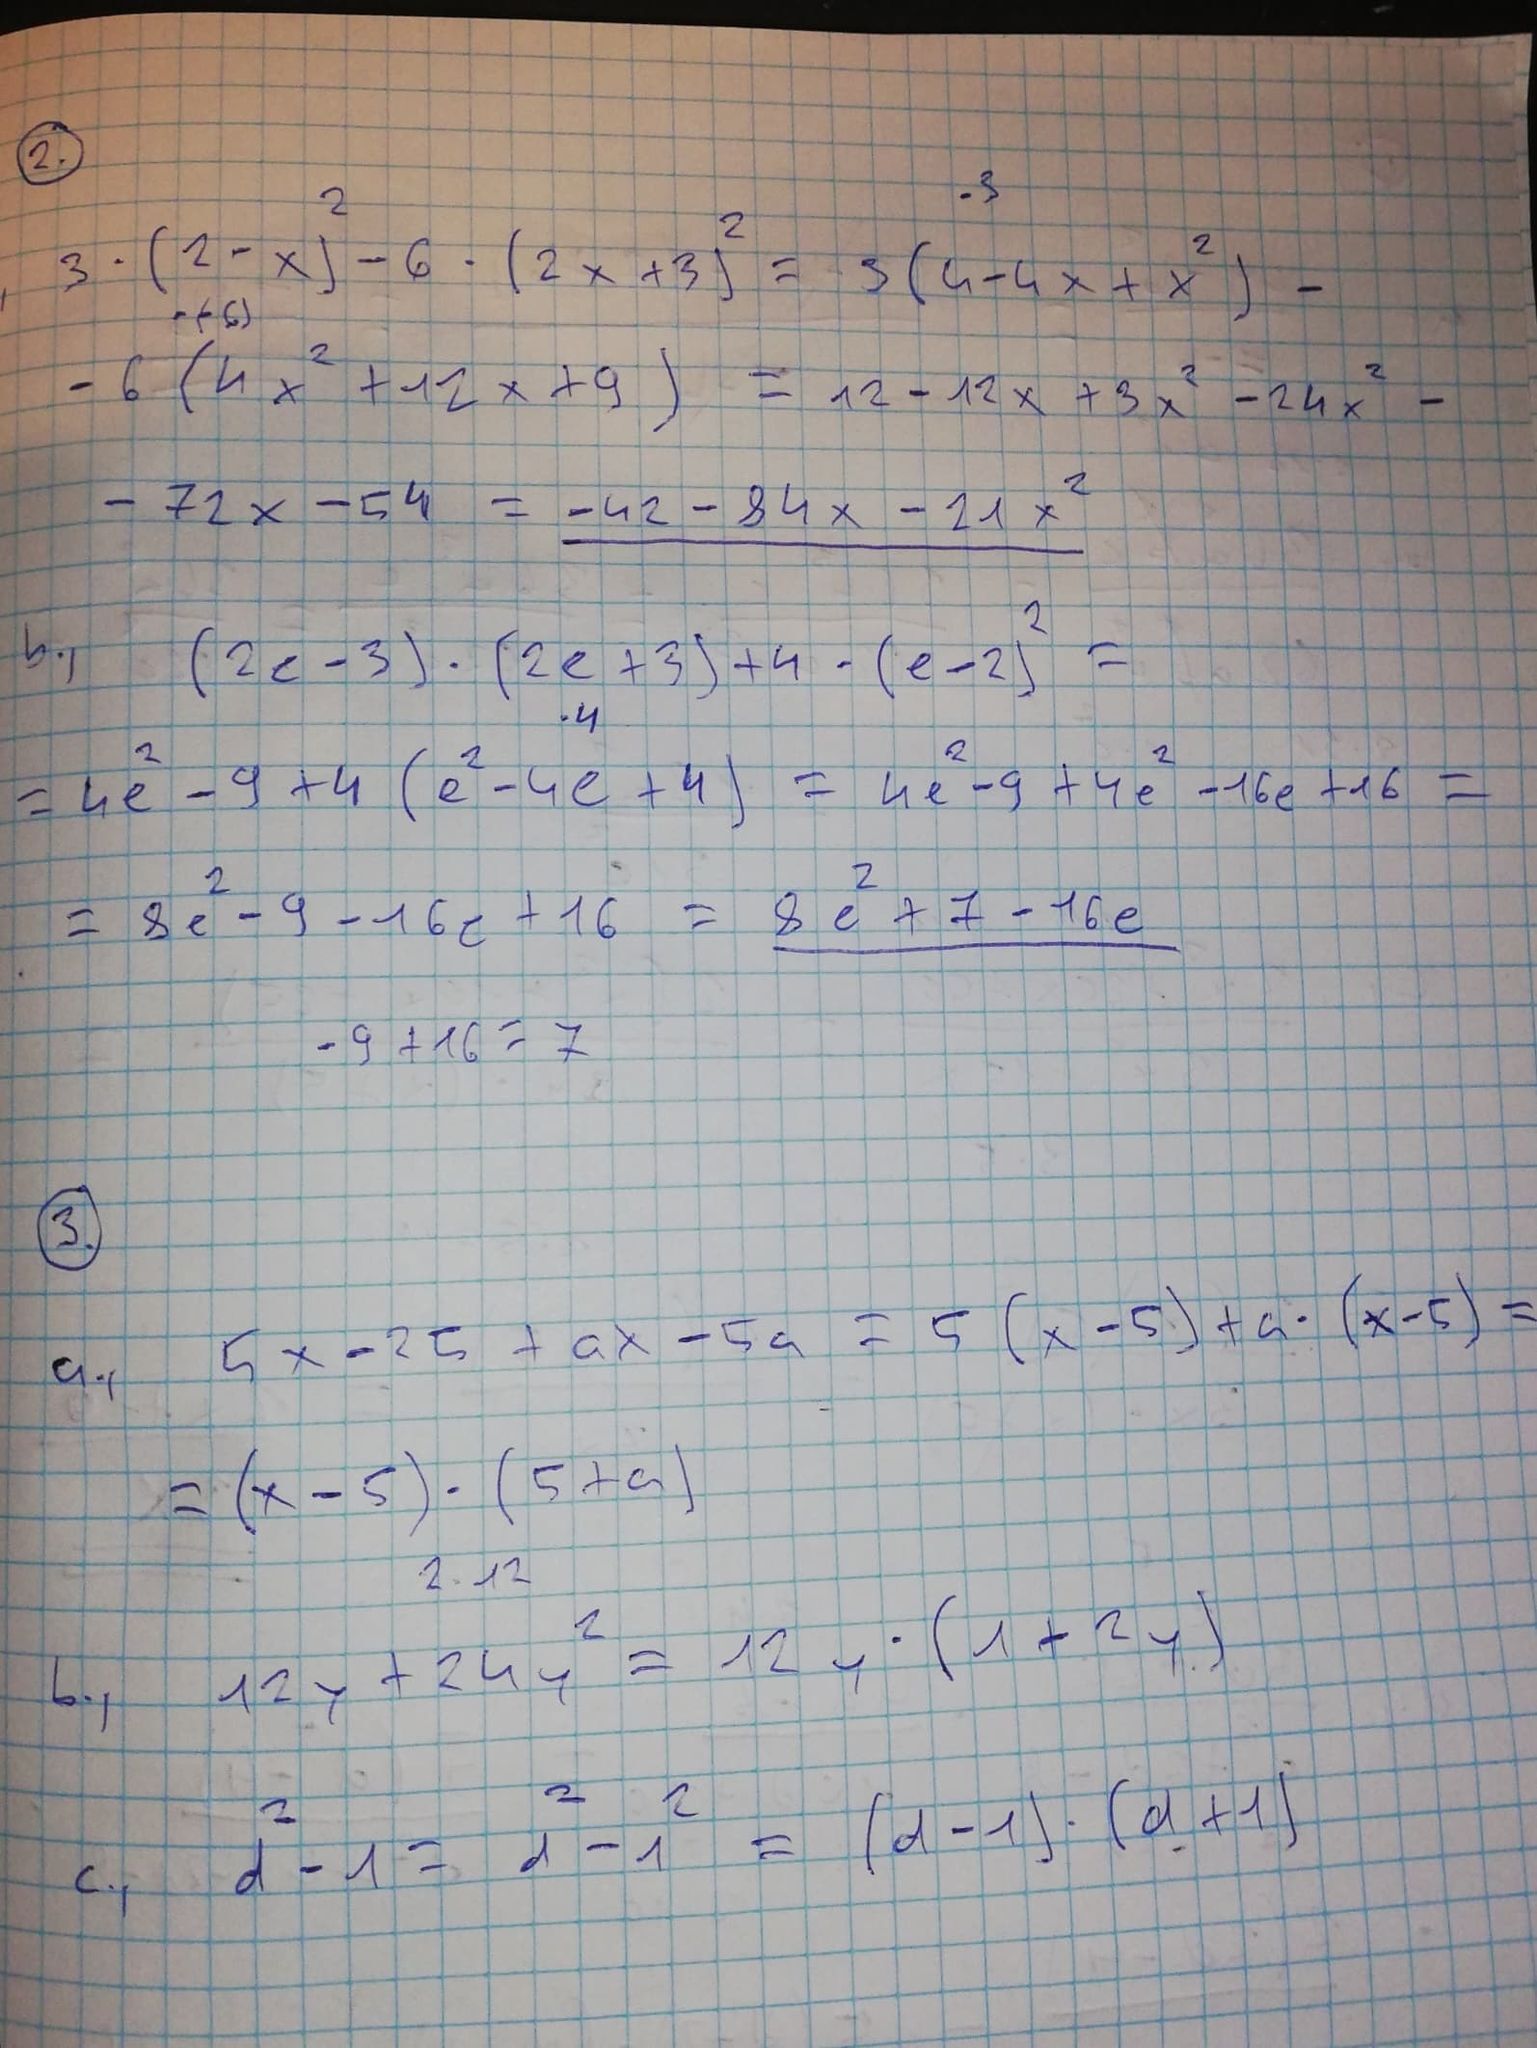 2.
·3
3·(2-x)² - 6·(2x+3)² = 3(4-4x+x²) -
·(-6)
- 6(4x²+12x+9) = 12-12x+3x²-24x² -
- 72x - 54 = -42-84x-21x²
b., (2e-3)·(2e+3)+4·(e-2)² =
·4
= 4e²-9+4(e²-4e+4) = 4e²-9+4e²-16e+16 =
= 8e²-9-16e+16 = 8e²+7-16e
-9+16=7
3.
a., 5x-25+ax-5a = 5(x-5)+a·(x-5) =
= (x-5)·(5+a)
2·12
b., 12y+24y² = 12y·(1+2y)
c., d²-1 = d²-1² = (d-1)·(d+1)